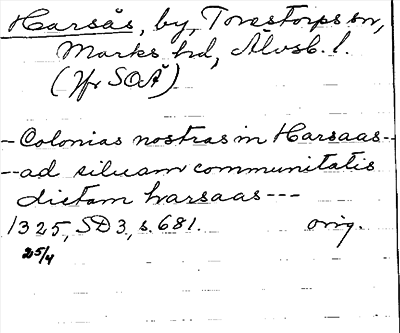 Harsås, by, Torestorps sn,
Marks hd, Älvsb. l.
(Jfr SOÄ)
- Colonias nostras in Harsaas --
-- ad siluam communitatis
dictam harsaas ---
1325, SD 3, s. 681. orig.
25/4